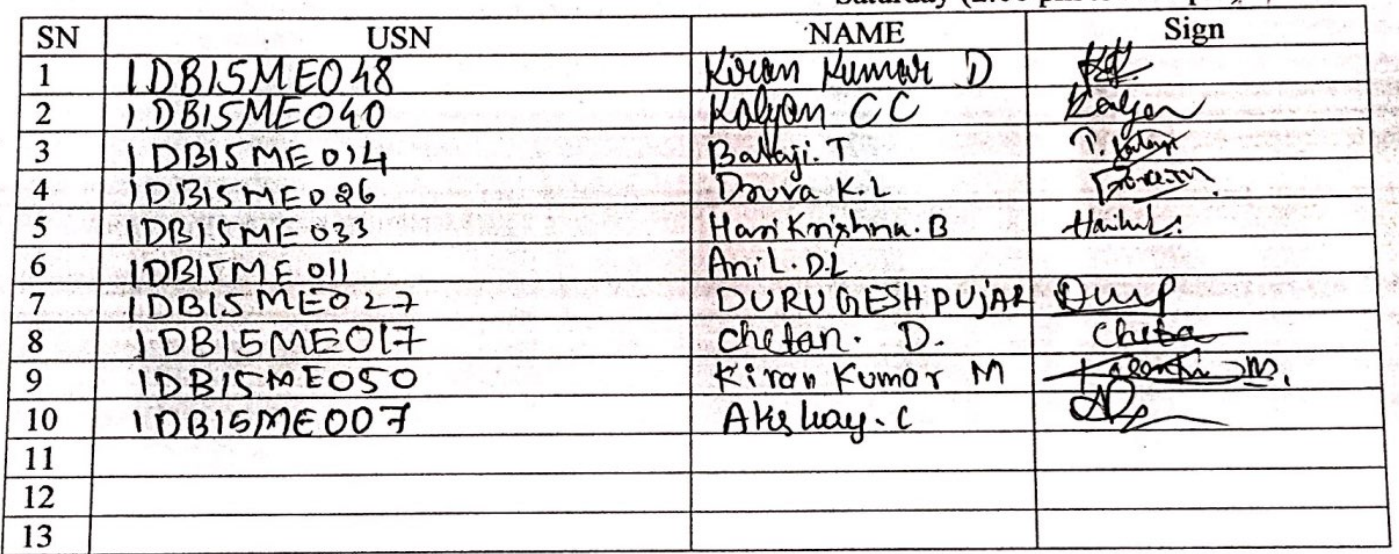 Saturday
SN USN NAME Sign
1 1DB15ME048 Kiran Kumar D
2 1DB15ME040 Kalyan CC Kalyan
3 1DB15ME014 Balaji. T T. Balaji
4 1DB15ME026 Druva K.L
5 1DB15ME033 Hari Krishna. B
6 1DB15ME011 Anil. D.L
7 1DB15ME027 DURUGESH PUJAR
8 1DB15ME017 Chetan. D. Cheta
9 1DB15ME050 Kiran Kumar M
10 1DB15ME007 Akshay. C
11
12
13